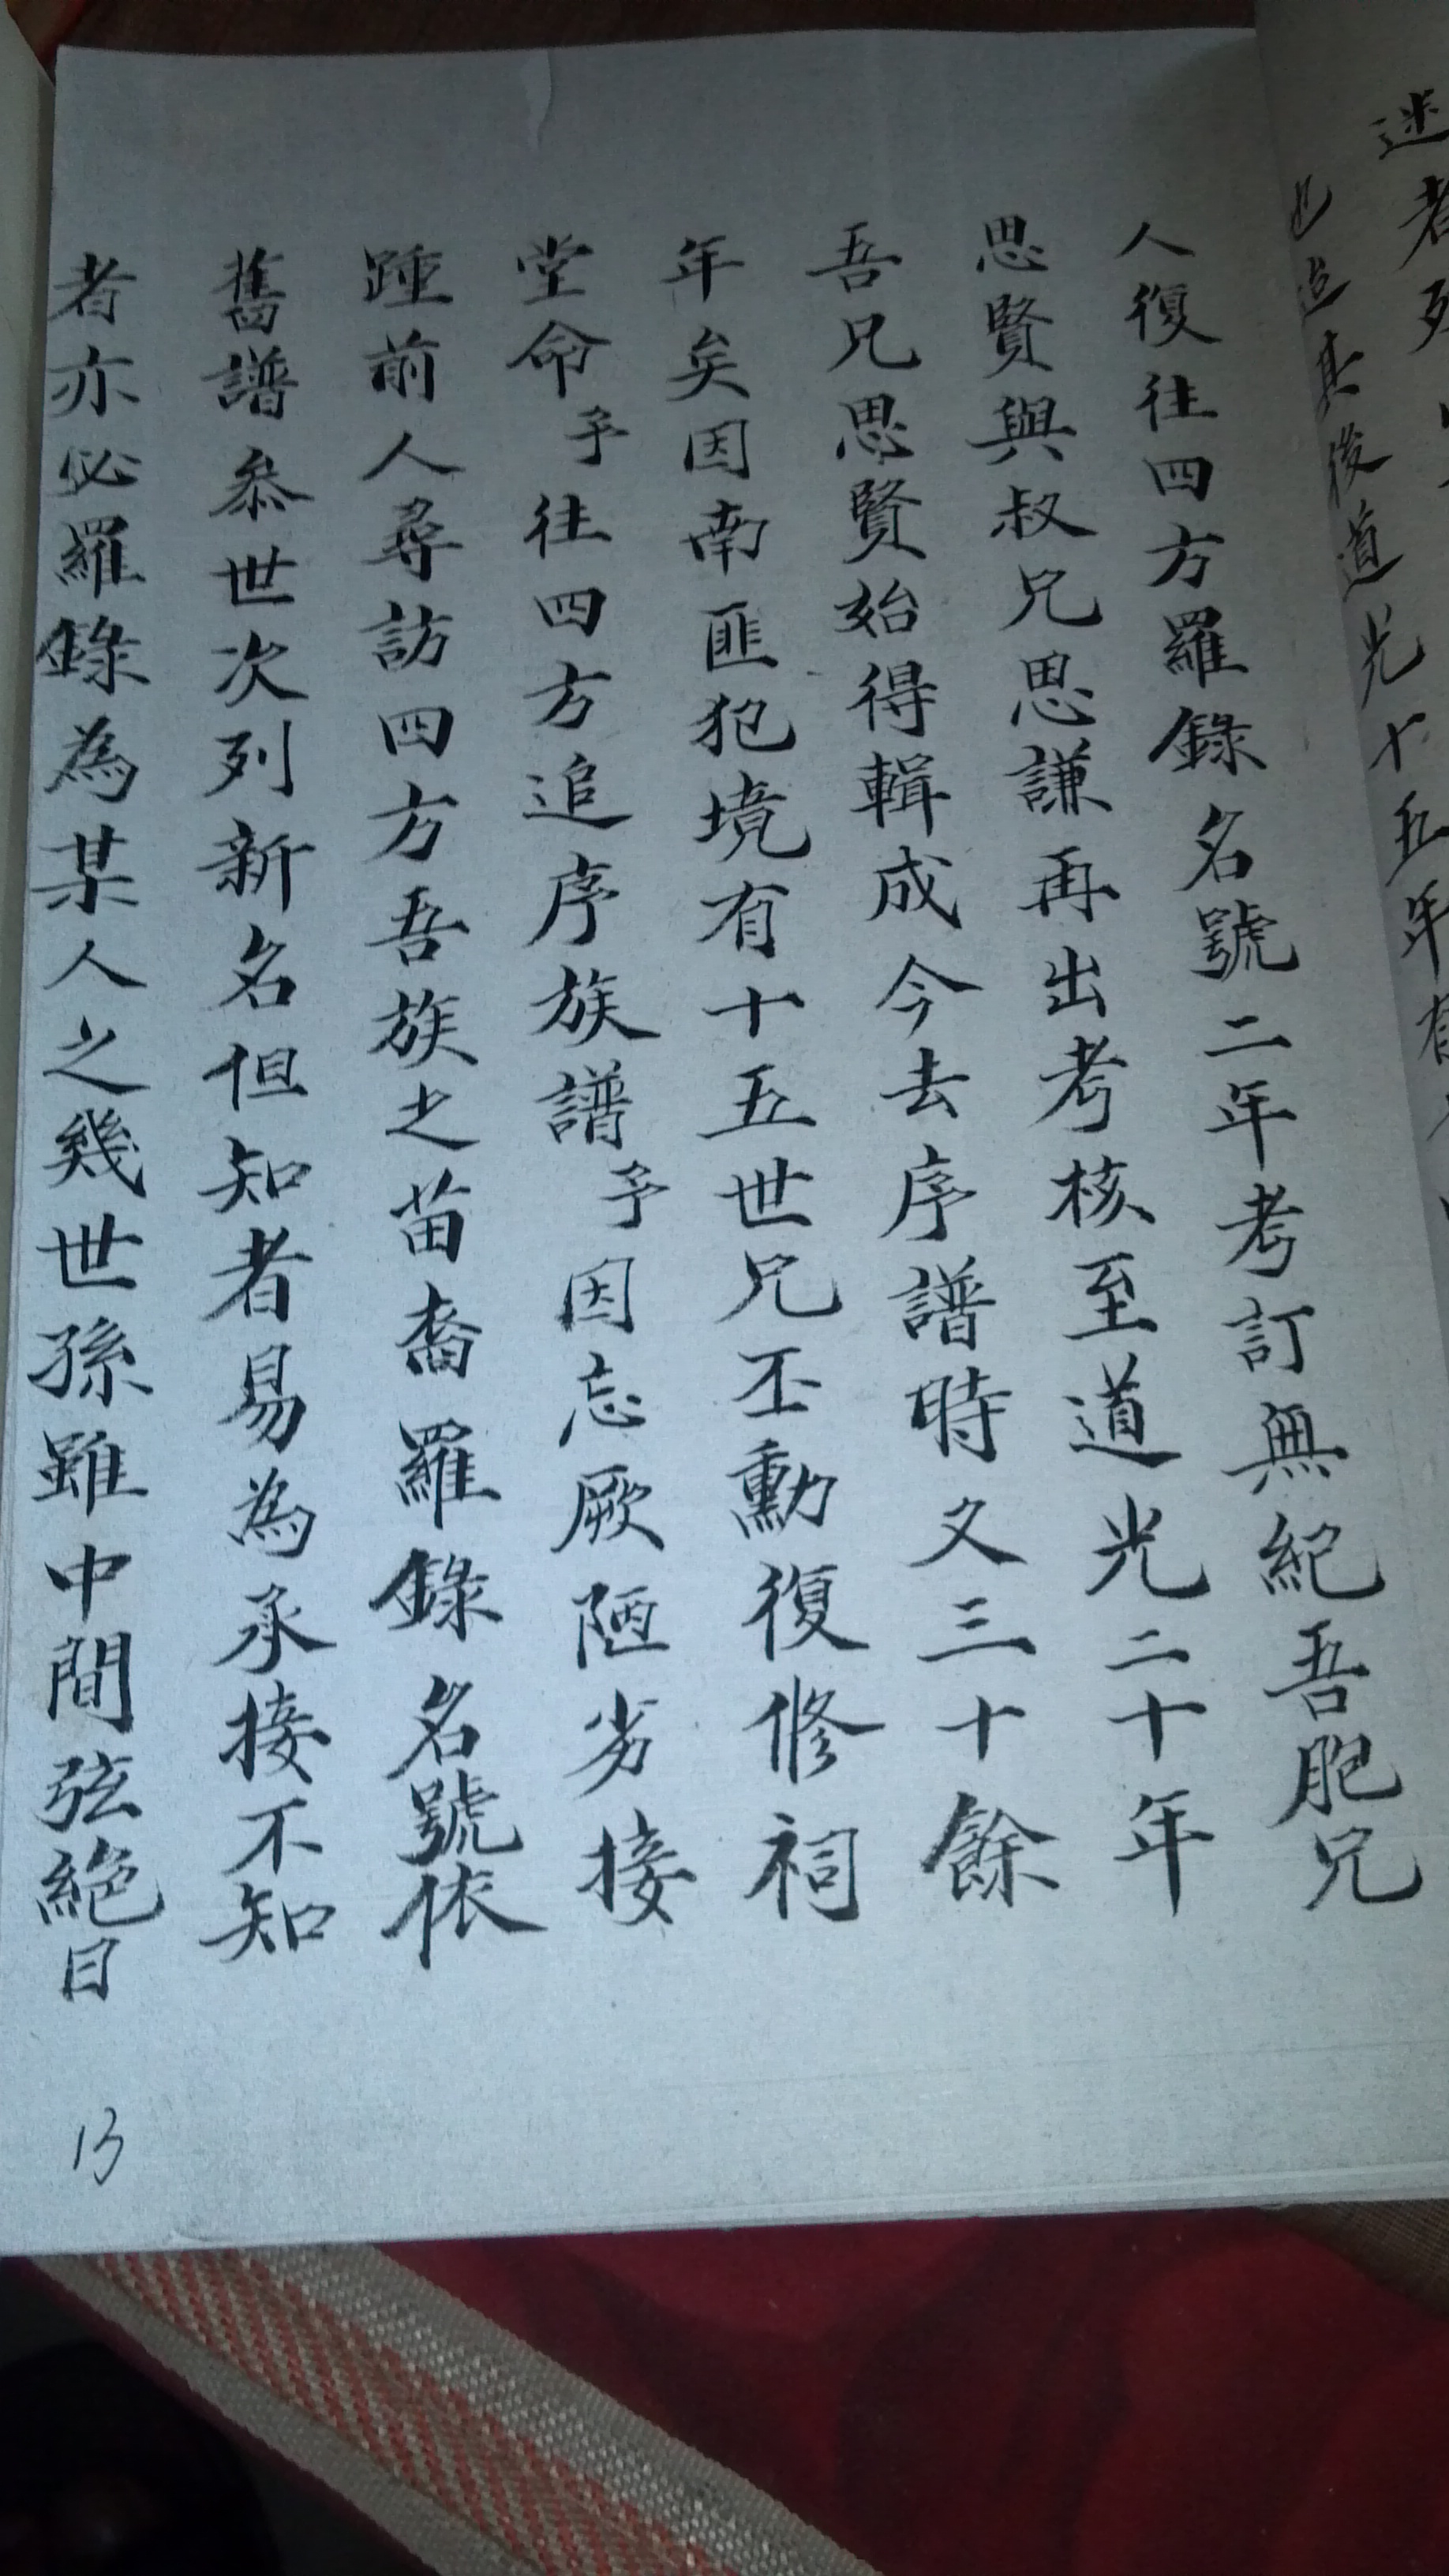 迷者列
也迨其後道光十五年有
人復往四方羅錄名號二年考訂無紀吾胞兄
思賢與叔兄思謙再出考核至道光二十年
吾兄思賢始得輯成今去序譜時又三十餘
年矣因南匪犯境有十五世兄丕勳復修祠
堂命予往四方追序族譜予因忘厥陋劣接
踵前人尋訪四方吾族之苗裔羅錄名號依
舊譜叅世次列新名但知者易為承接不知
者亦必羅錄為某人之幾世孫雖中間弦絕日
13